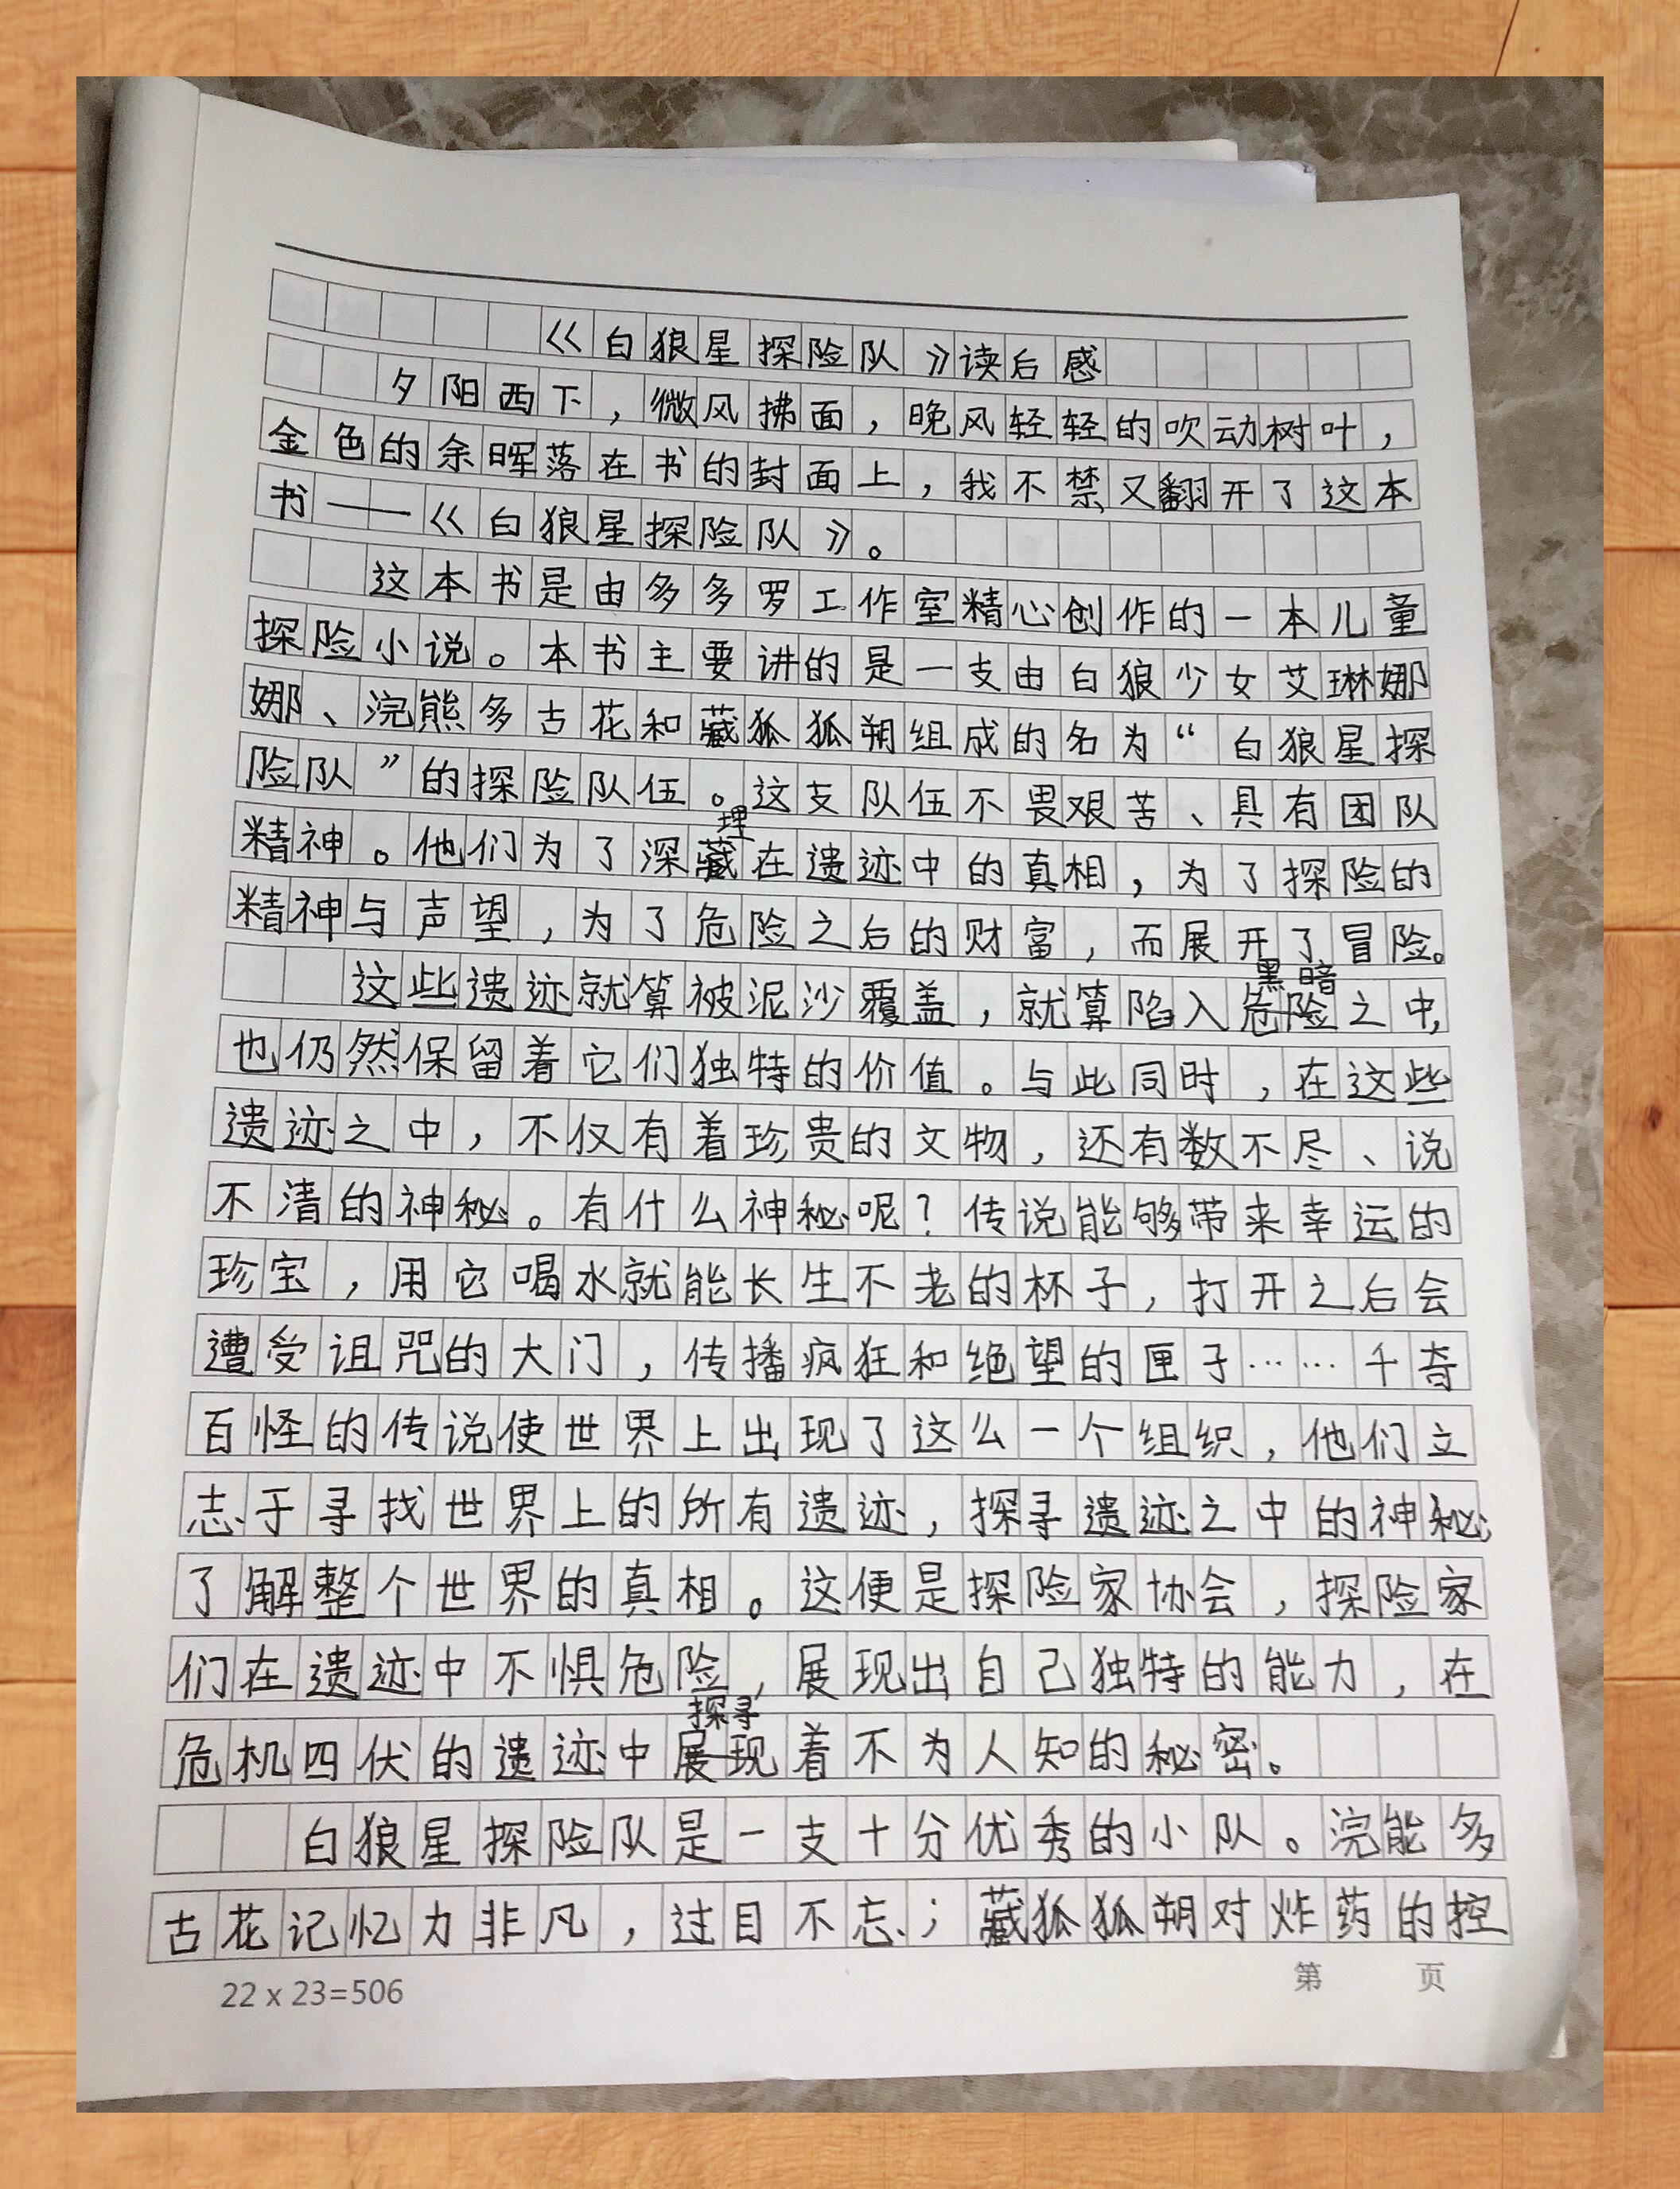 《白狼星探险队》读后感
夕阳西下，微风拂面，晚风轻轻的吹动树叶，
金色的余晖落在书的封面上，我不禁又翻开了这本
书——《白狼星探险队》。
这本书是由多多罗工作室精心创作的一本儿童
探险小说。本书主要讲的是一支由白狼少女艾琳娜
娜、浣熊多古花和藏狐狐朔组成的名为“白狼星探
险队”的探险队伍。这支队伍不畏艰苦、具有团队
理
精神。他们为了深藏在遗迹中的真相，为了探险的
精神与声望，为了危险之后的财富，而展开了冒险。
黑暗
这些遗迹就算被泥沙覆盖，就算陷入危险之中，
也仍然保留着它们独特的价值。与此同时，在这些
遗迹之中，不仅有着珍贵的文物，还有数不尽、说
不清的神秘。有什么神秘呢？传说能够带来幸运的
珍宝，用它喝水就能长生不老的杯子，打开之后会
遭受诅咒的大门，传播疯狂和绝望的匣子……千奇
百怪的传说使世界上出现了这么一个组织，他们立
志于寻找世界上的所有遗迹，探寻遗迹之中的神秘，
了解整个世界的真相。这便是探险家协会，探险家
们在遗迹中不惧危险，展现出自己独特的能力，在
探寻
危机四伏的遗迹中展现着不为人知的秘密。
白狼星探险队是一支十分优秀的小队。浣能多
古花记忆力非凡，过目不忘；藏狐狐朔对炸药的控
22 x 23=506
第 页